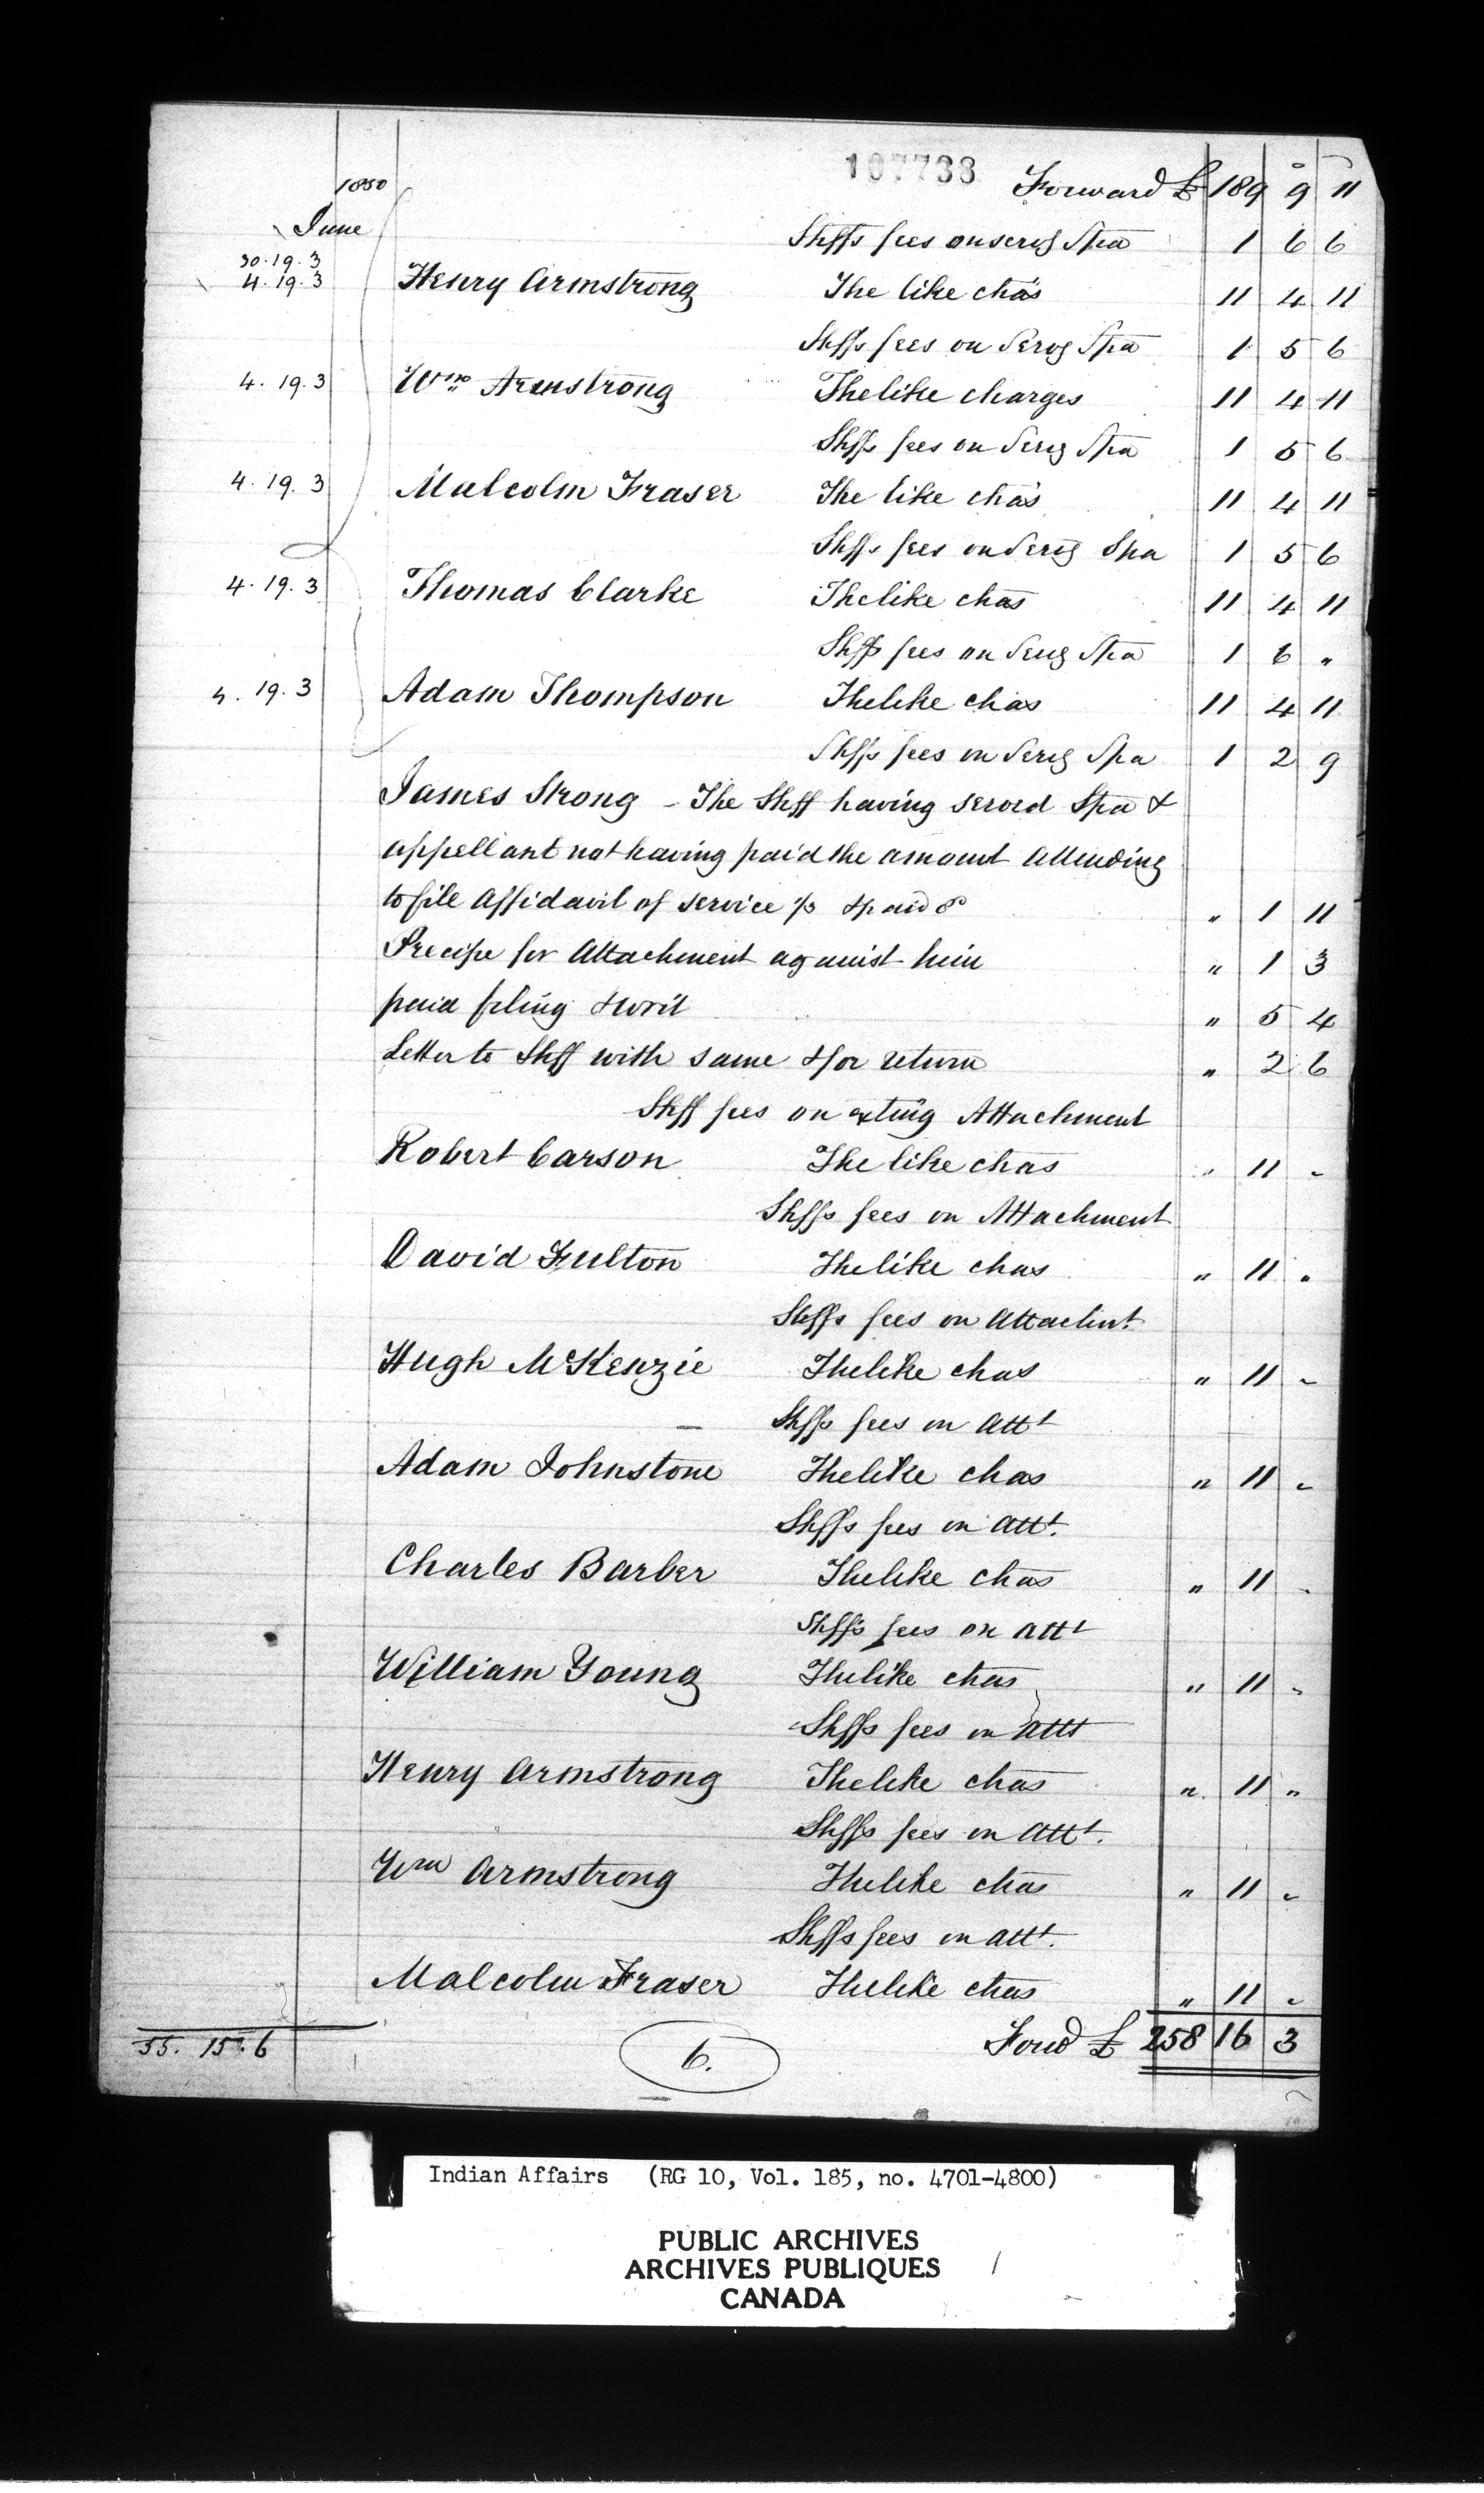 107733
Forward £ 189 9 11
1850
June
Shffs fees on serv͞g Spa 1 6 6
30. 19. 3
4. 19. 3 Henry Armstrong The like chas 11 4 11
Shffs fees on Serv͞g Spa 1 5 6
4. 19. 3 Wm Armstrong The like charges 11 4 11
Shffs fees on Serv͞g Spa 1 5 6
4. 19. 3 Malcolm Fraser The like chas 11 4 11
Shffs fees on Serv͞g Spa 1 5 6
4. 19. 3 Thomas Clarke The like chas 11 4 11
Shffs fees on Serv͞g Spa 1 6 "
4. 19. 3 Adam Thompson The like chas 11 4 11
Shffs fees on Serv͞g Spa 1 2 9
James Strong - The Shff having served Spa &
appellant not having paid the amount Attending
to file Affidavit of service &paid " 1 11
Precipe for Attachment against him " 1 3
paid filing & writ " 5 4
Letter to Shff with same & for return " 2 6
Shff fees on exting Attachment
Robert Carson The like chas " 11 -
Shffs fees on Attachment
David Fulton The like chas " 11 "
Shffs fees on Attachmt.
Hugh McKenzie The like chas " 11 -
Shffs fees on Att
Adam Johnstone The like chas " 11 -
Shffs fees on Att.
Charles Barber The like chas " 11 -
Shffs fees on att
William Young The like chas " 11 -
Shffs fees on Att
Henry Armstrong The like chas " 11 "
Shffs fees on Att.
Wm Armstrong The like chas " 11 -
Shffs fees on att.
Malcolm Fraser The like chas " 11 -
55. 15. 6 6. Forwd £ 258 16 3
Indian Affairs (RG 10, Vol. 185, no. 4701-4800)
PUBLIC ARCHIVES
ARCHIVES PUBLIQUES
CANADA